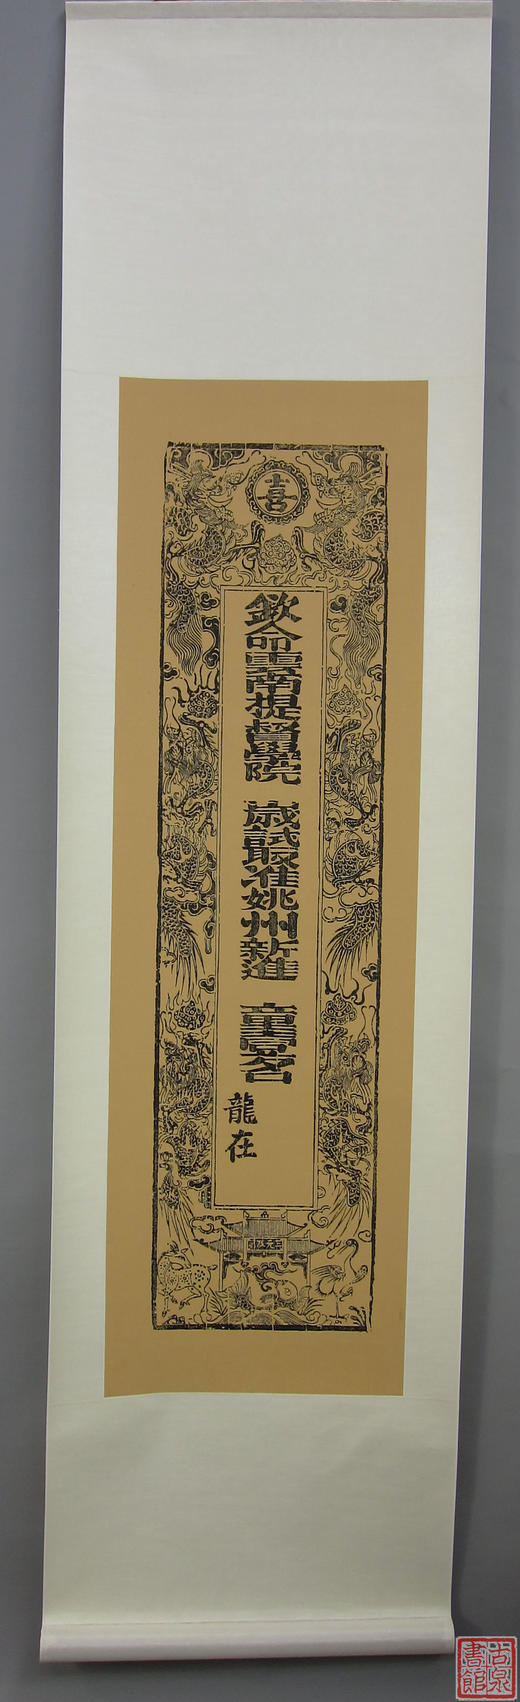 欽命雲南提督學院 歲試取准姚州新進 童壹名
龍在
古泉
書館